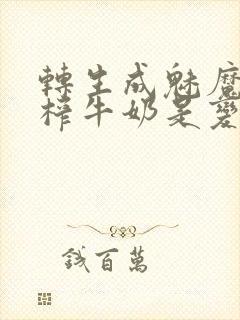 轉生成魅魔
榨牛奶是變
錢百萬